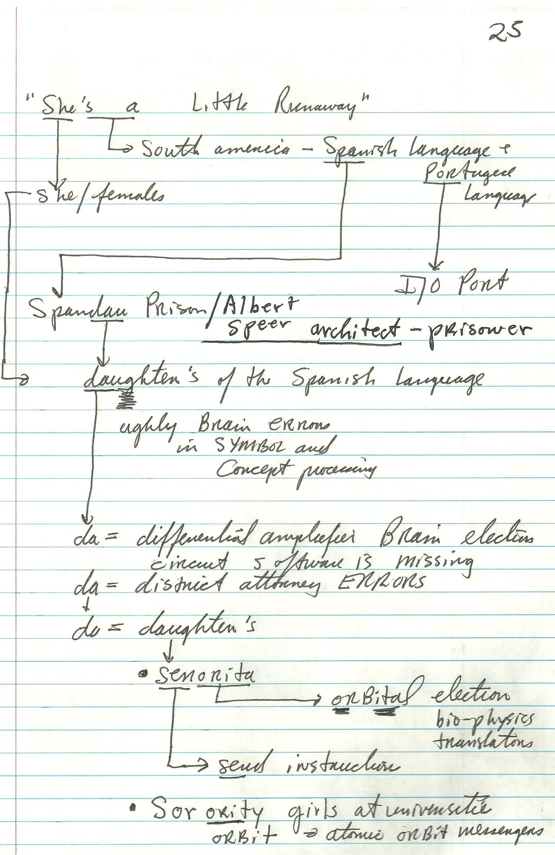 25
"She's a Little Runaway"
South america - Spanish Language +
Portugese
Language
she/females
I/O Port
Spandau Prison/Albert
Speer architect - prisoner
daughter's of the Spanish Language
ughly Brain ERRORS
in SYMBOL and
Concept processing
da = differential amplifier Brain electron
circuit software is missing
da = district attorney ERRORS
da = daughter's
• senorita
orBital election
bio-physics
translators
send instruction
• Sorority girls at universitie
ORBit → atomic ORBit messengers